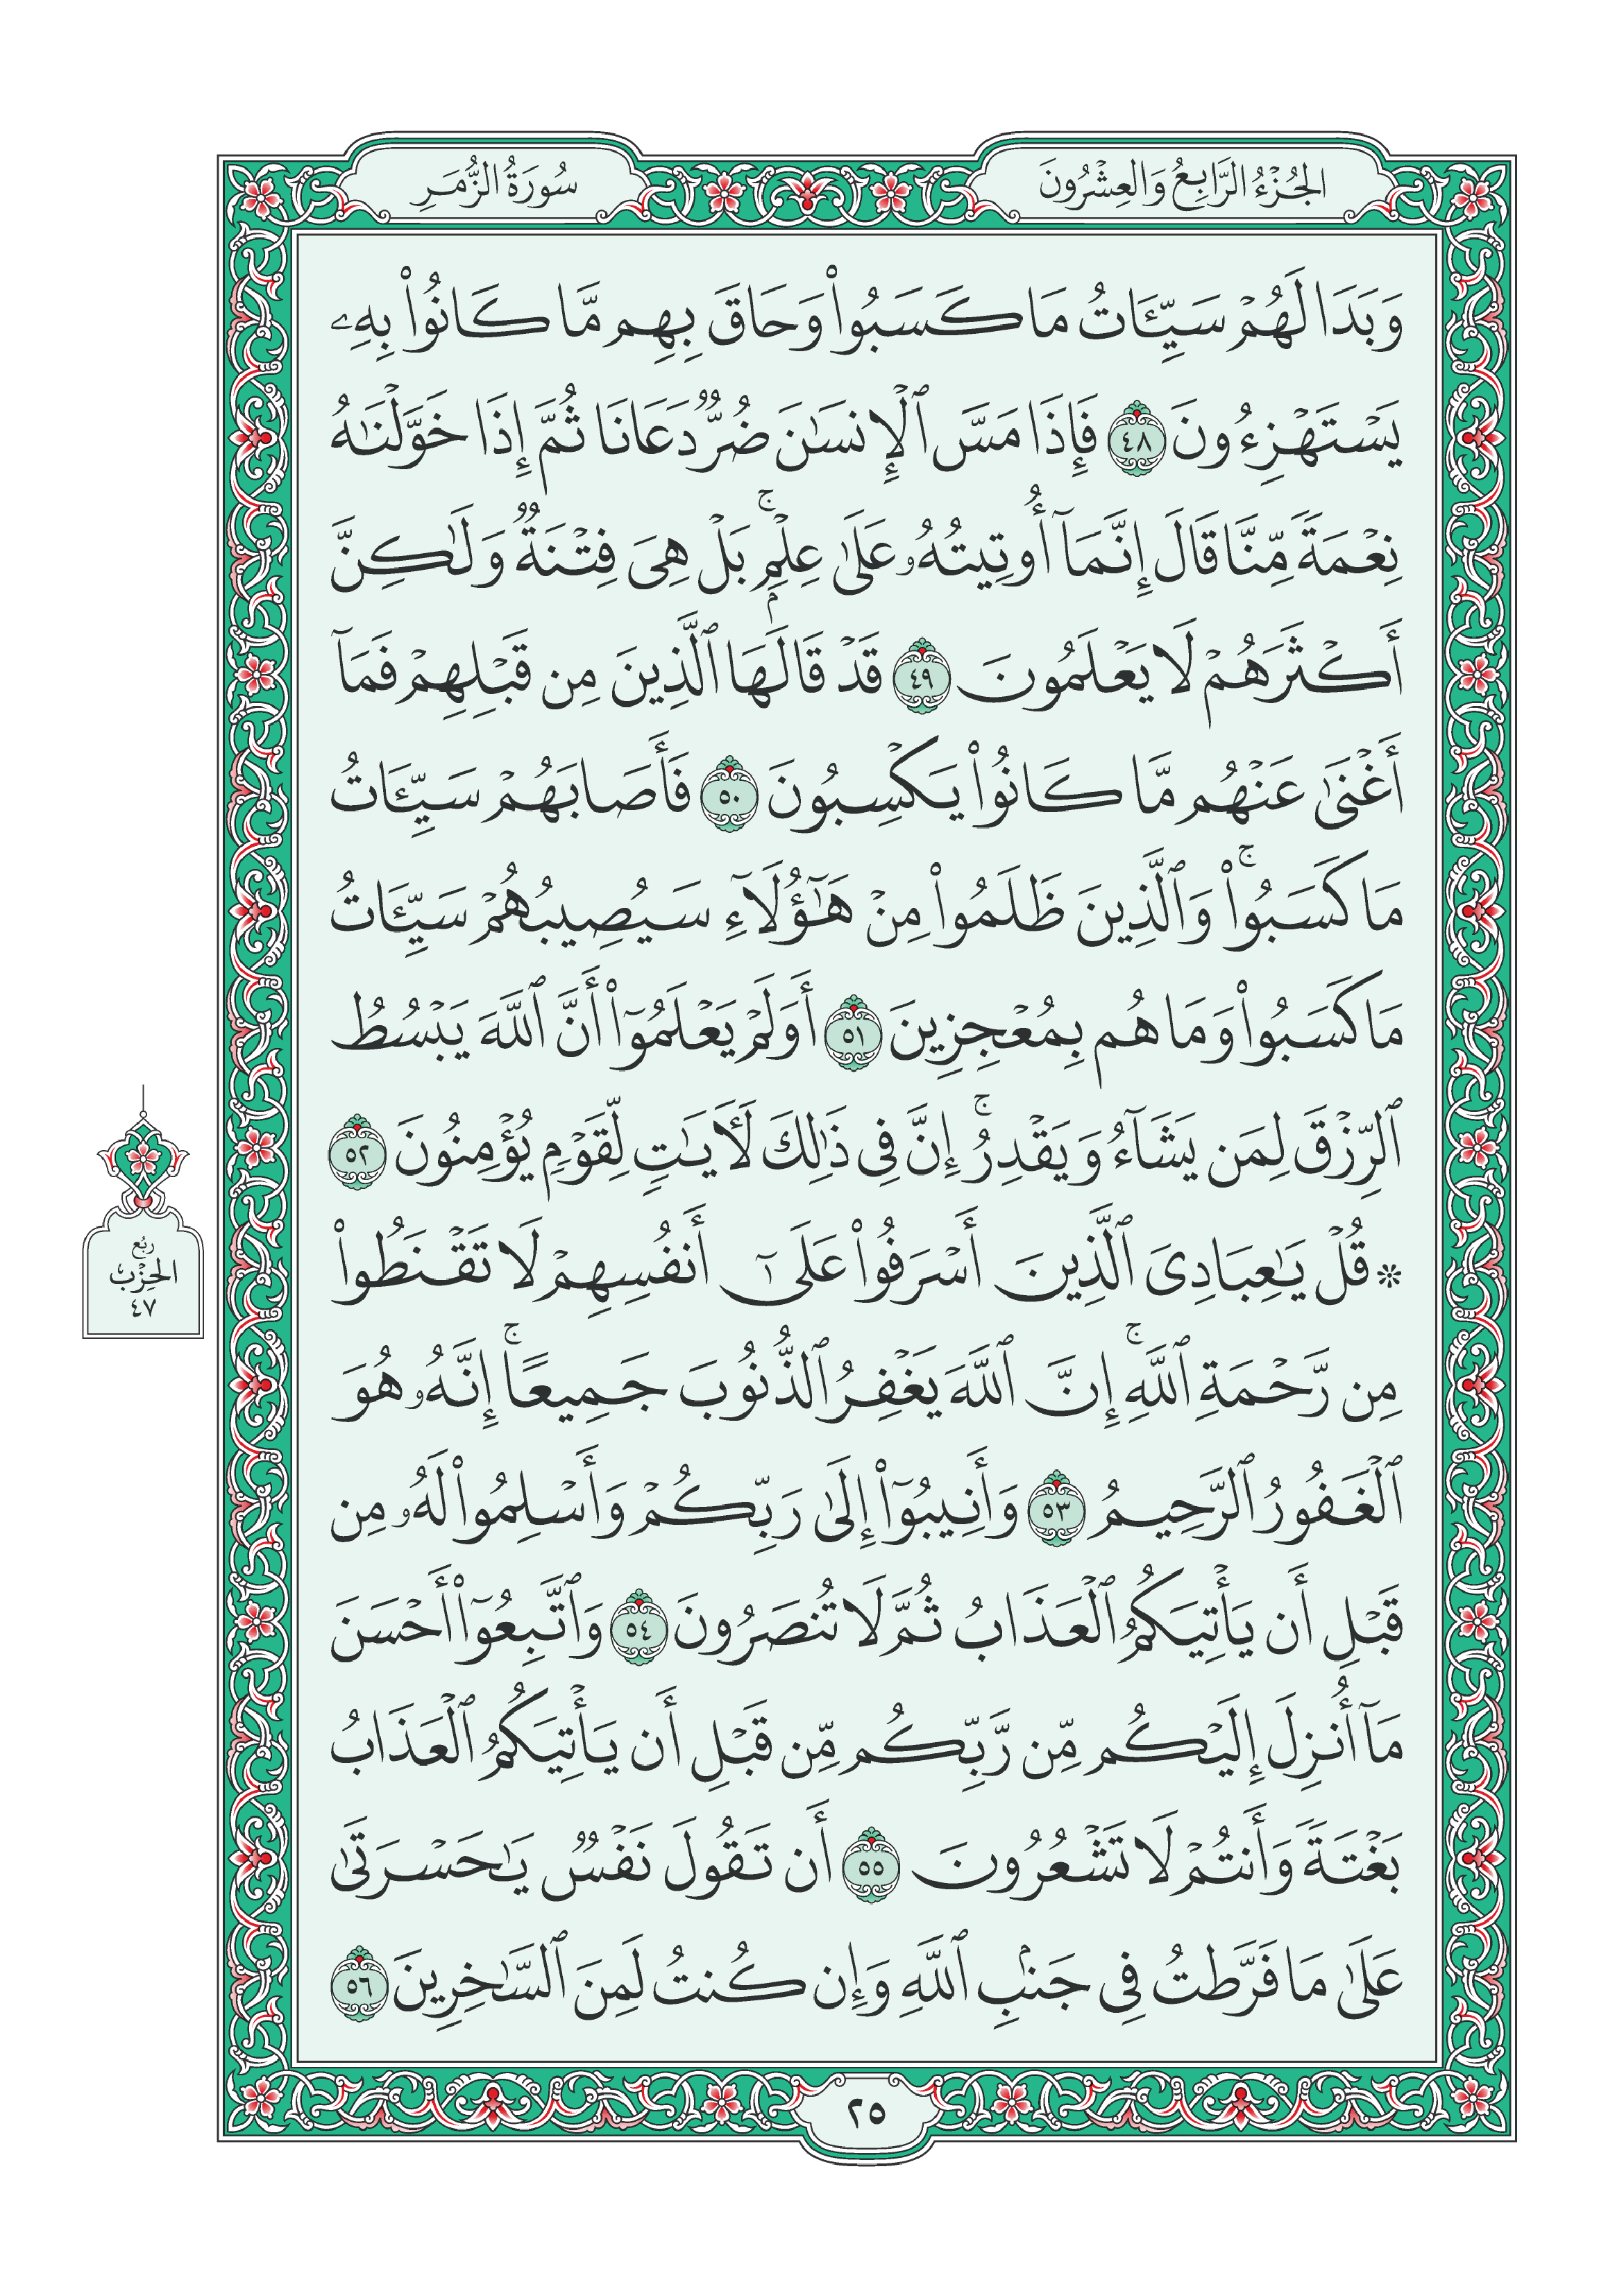 الجُزْءُ الرَّابِعُ وَالعِشْرُونَ
سُورَةُ الزُّمَرِ
وَبَدَا لَهُمْ سَيِّـَٔاتُ مَا كَسَبُوا۟ وَحَاقَ بِهِم مَّا كَانُوا۟ بِهِۦ
يَسْتَهْزِءُونَ ٤٨ فَإِذَا مَسَّ ٱلْإِنسَـٰنَ ضُرٌّ دَعَانَا ثُمَّ إِذَا خَوَّلْنَـٰهُ
نِعْمَةً مِّنَّا قَالَ إِنَّمَآ أُوتِيتُهُۥ عَلَىٰ عِلْمٍۭ ۚ بَلْ هِىَ فِتْنَةٌ وَلَـٰكِنَّ
أَكْثَرَهُمْ لَا يَعْلَمُونَ ٤٩ قَدْ قَالَهَا ٱلَّذِينَ مِن قَبْلِهِمْ فَمَآ
أَغْنَىٰ عَنْهُم مَّا كَانُوا۟ يَكْسِبُونَ ٥٠ فَأَصَابَهُمْ سَيِّـَٔاتُ
مَا كَسَبُوا۟ ۚ وَٱلَّذِينَ ظَلَمُوا۟ مِنْ هَـٰٓؤُلَآءِ سَيُصِيبُهُمْ سَيِّـَٔاتُ
مَا كَسَبُوا۟ وَمَا هُم بِمُعْجِزِينَ ٥١ أَوَلَمْ يَعْلَمُوٓا۟ أَنَّ ٱللَّهَ يَبْسُطُ
ٱلرِّزْقَ لِمَن يَشَآءُ وَيَقْدِرُ ۚ إِنَّ فِى ذَٰلِكَ لَـَٔايَـٰتٍ لِّقَوْمٍ يُؤْمِنُونَ ٥٢
۞ قُلْ يَـٰعِبَادِىَ ٱلَّذِينَ أَسْرَفُوا۟ عَلَىٰٓ أَنفُسِهِمْ لَا تَقْنَطُوا۟
مِن رَّحْمَةِ ٱللَّهِ ۚ إِنَّ ٱللَّهَ يَغْفِرُ ٱلذُّنُوبَ جَمِيعًا ۚ إِنَّهُۥ هُوَ
ٱلْغَفُورُ ٱلرَّحِيمُ ٥٣ وَأَنِيبُوٓا۟ إِلَىٰ رَبِّكُمْ وَأَسْلِمُوا۟ لَهُۥ مِن
قَبْلِ أَن يَأْتِيَكُمُ ٱلْعَذَابُ ثُمَّ لَا تُنصَرُونَ ٥٤ وَٱتَّبِعُوٓا۟ أَحْسَنَ
مَآ أُنزِلَ إِلَيْكُم مِّن رَّبِّكُم مِّن قَبْلِ أَن يَأْتِيَكُمُ ٱلْعَذَابُ
بَغْتَةً وَأَنتُمْ لَا تَشْعُرُونَ ٥٥ أَن تَقُولَ نَفْسٌ يَـٰحَسْرَتَىٰ
عَلَىٰ مَا فَرَّطتُ فِى جَنۢبِ ٱللَّهِ وَإِن كُنتُ لَمِنَ ٱلسَّـٰخِرِينَ ٥٦
رُبُع
الحِزْب
٤٧
٢٥